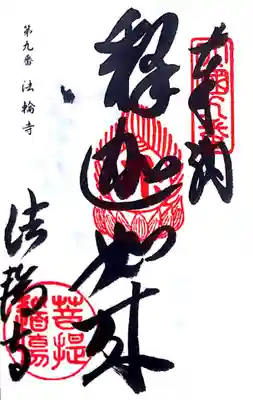 奉納
釋迦如来
法輪寺
菩提
道場
第九番 法輪寺